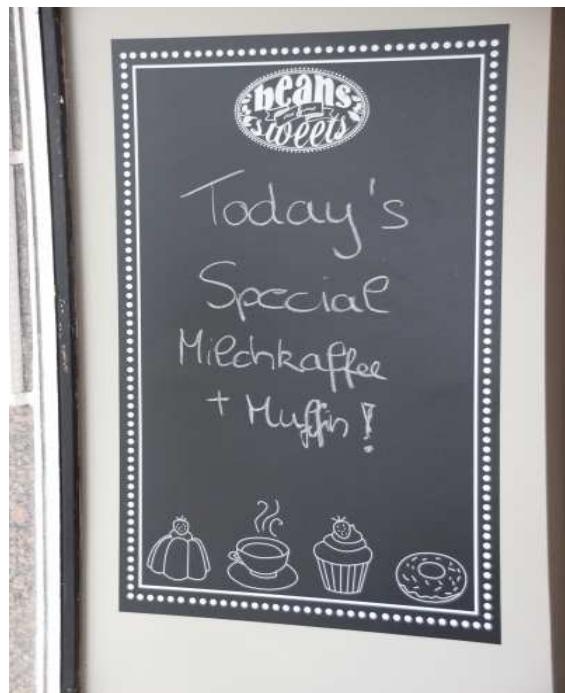 beans
sweets
Today's
Special
Milchkaffee
+ Muffin!